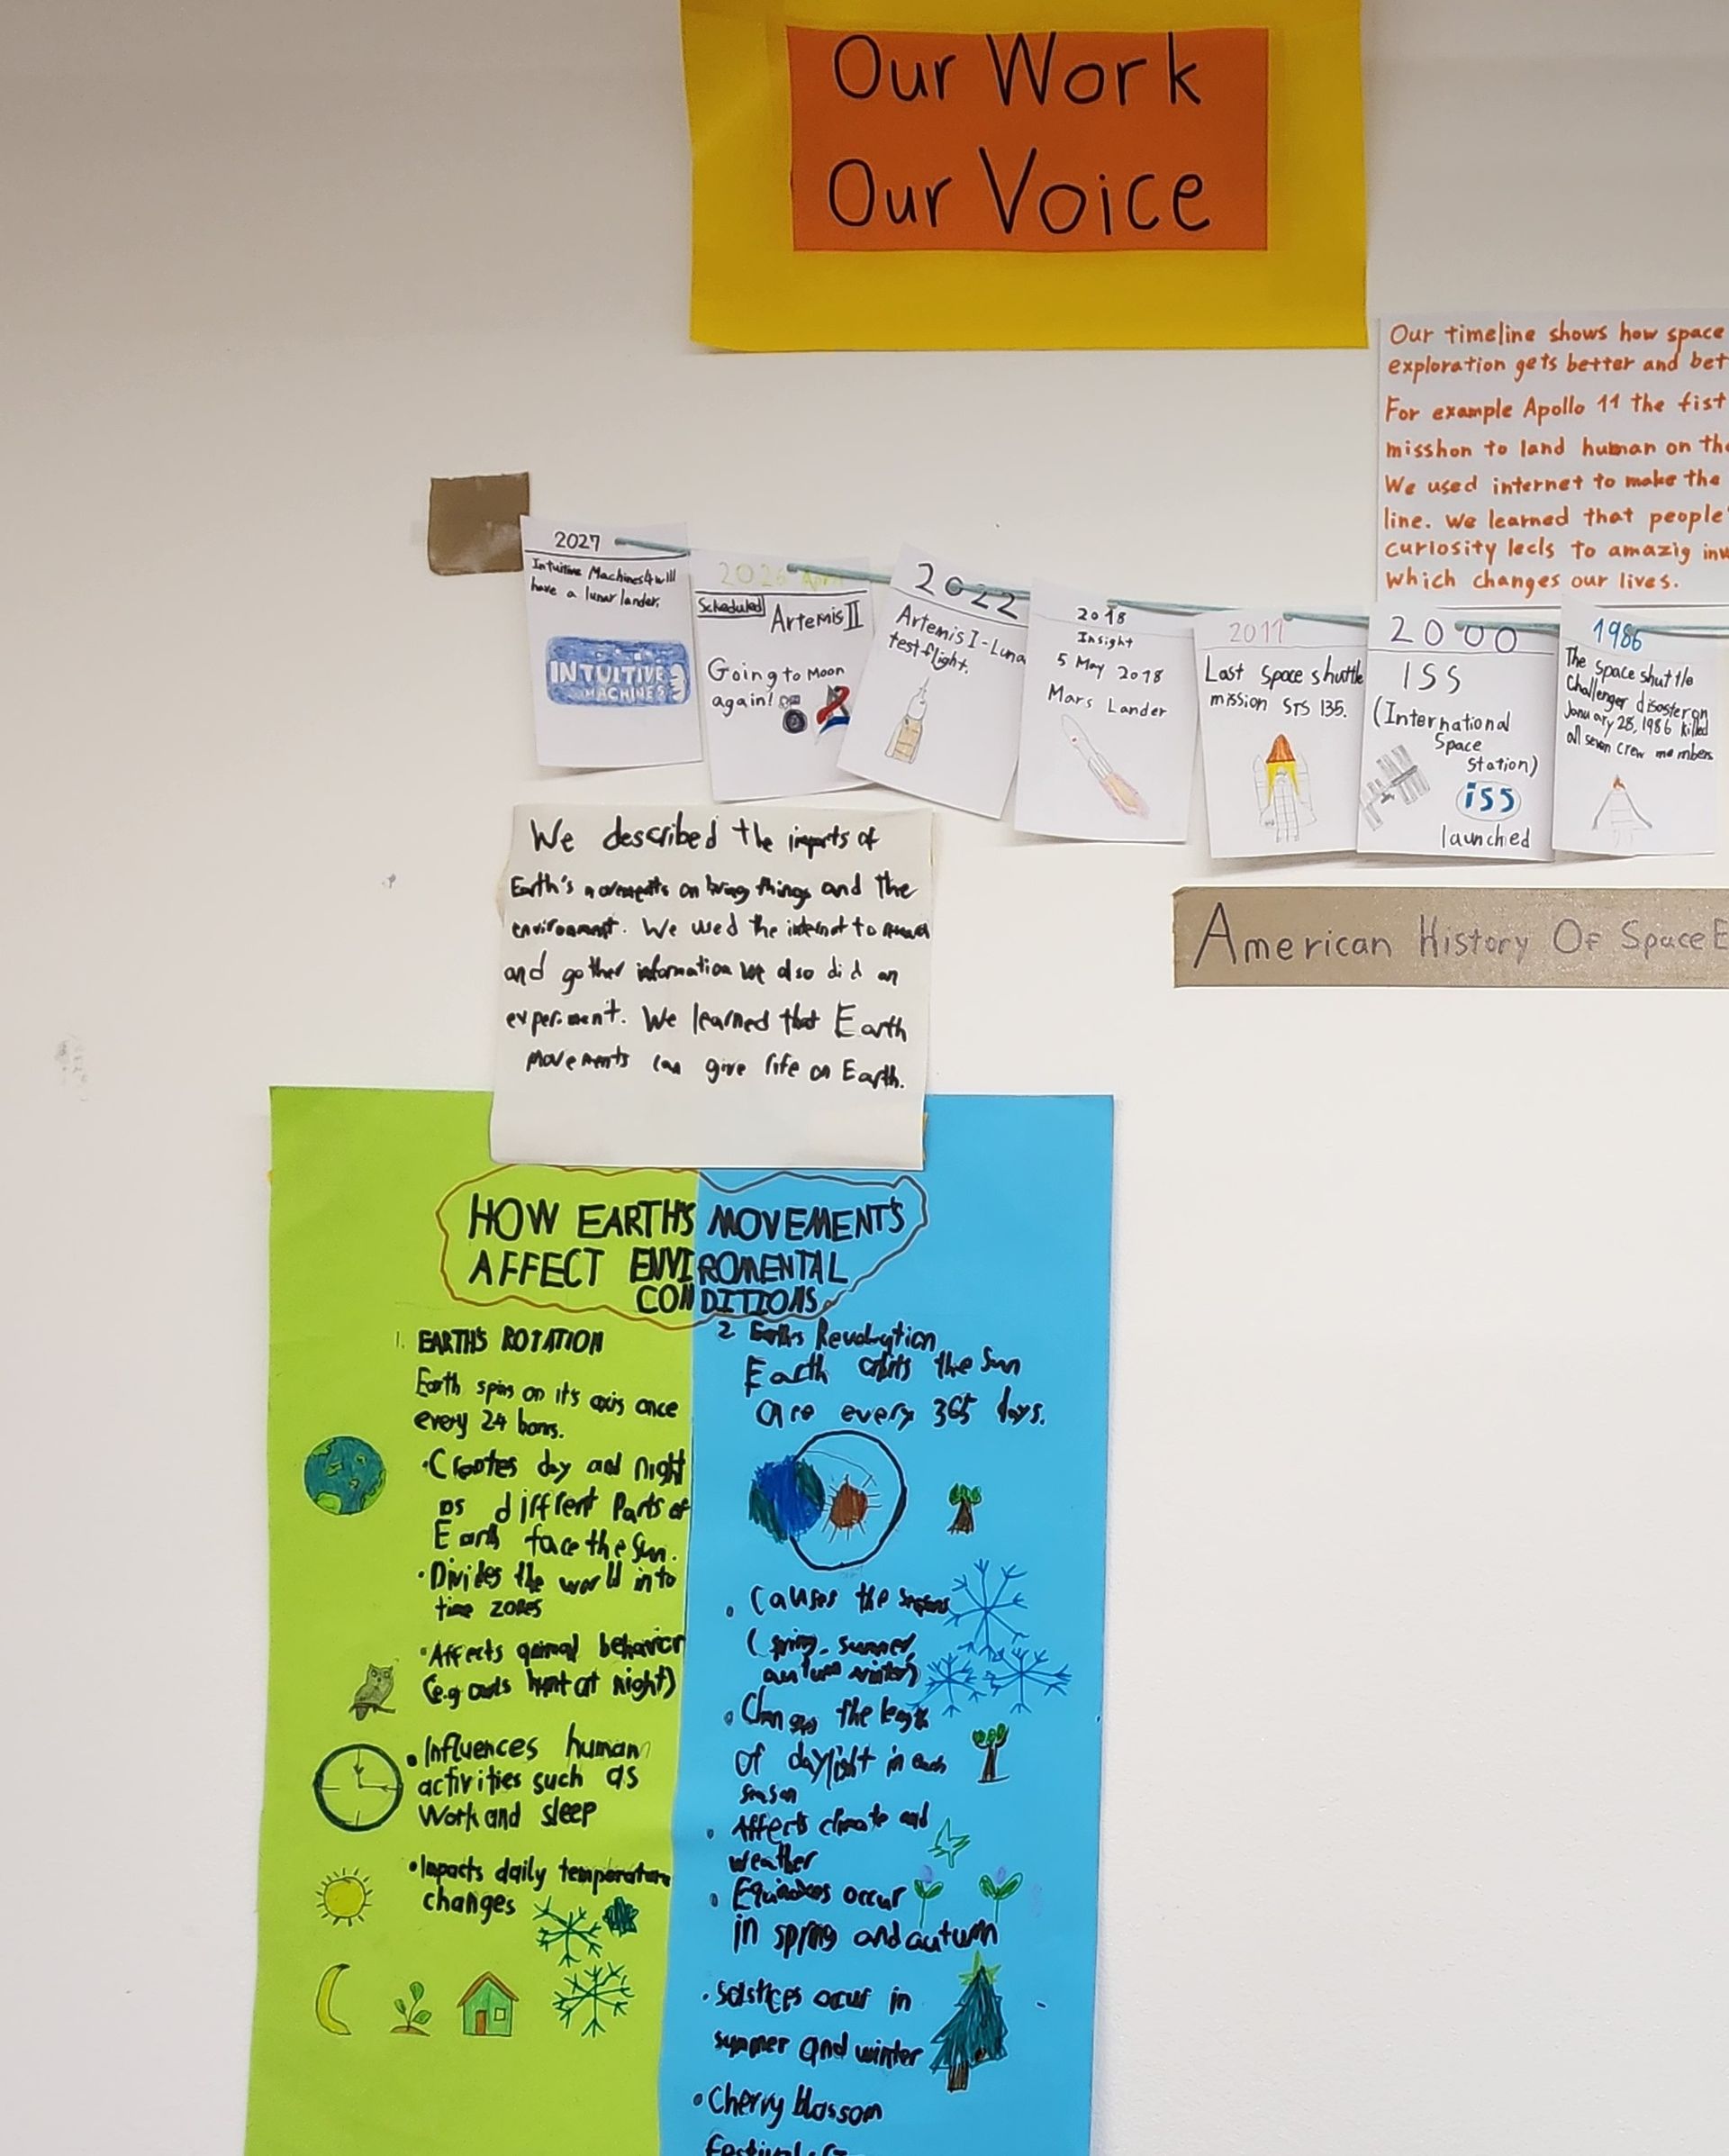 Our Work
Our Voice
Our timeline shows how space
exploration gets better and bet
For example Apollo 11 the fist
misshon to land human on the
We used internet to make the
line. We learned that people'
curiosity leds to amazig inv
which changes our lives.
2027
Intuitive Machines 4 will
have a lunar lander.
INTUITIVE
MACHINES
2026 April
Scheduled
Artemis II
Going to Moon
again!
2022
Artemis I - Luna
test flight.
2018
Insight
5 May 2018
Mars Lander
2011
Last Space shuttle
mission STS 135.
2000
ISS
(International
Space
Station)
iss
launched
1986
The space shuttle
Challenger disaster on
January 28, 1986 killed
all seven crew members
American History Of Space E
We described the impacts of
Earth's movements on living things and the
environment. We used the internet to
and gather information we also did an
experiment. We learned that Earth
movements can give life on Earth.
HOW EARTH'S MOVEMENTS
AFFECT ENVIROMENTAL
CONDITIONS.
1. EARTH'S ROTATION
Earth spins on it's axis once
every 24 hours.
• Creates day and night
as diffrent Parts of
Earth face the Sun.
• Divides the world into
time zones
• Affects animal behavior
(e.g owls hunt at night)
• Influences human
activities such as
Work and sleep
• Impacts daily temperature
changes
2. Earth's
Earth orbits the Sun
every 365 days.
• Causes the seasons
(spring, summer,
autumn winter)
• Changes the length
of daylight in each
season
• Affects climate and
weather
• Equinoxes occur
in spring and autumn
• Solstices occur in
summer and winter
• Cherry blossom